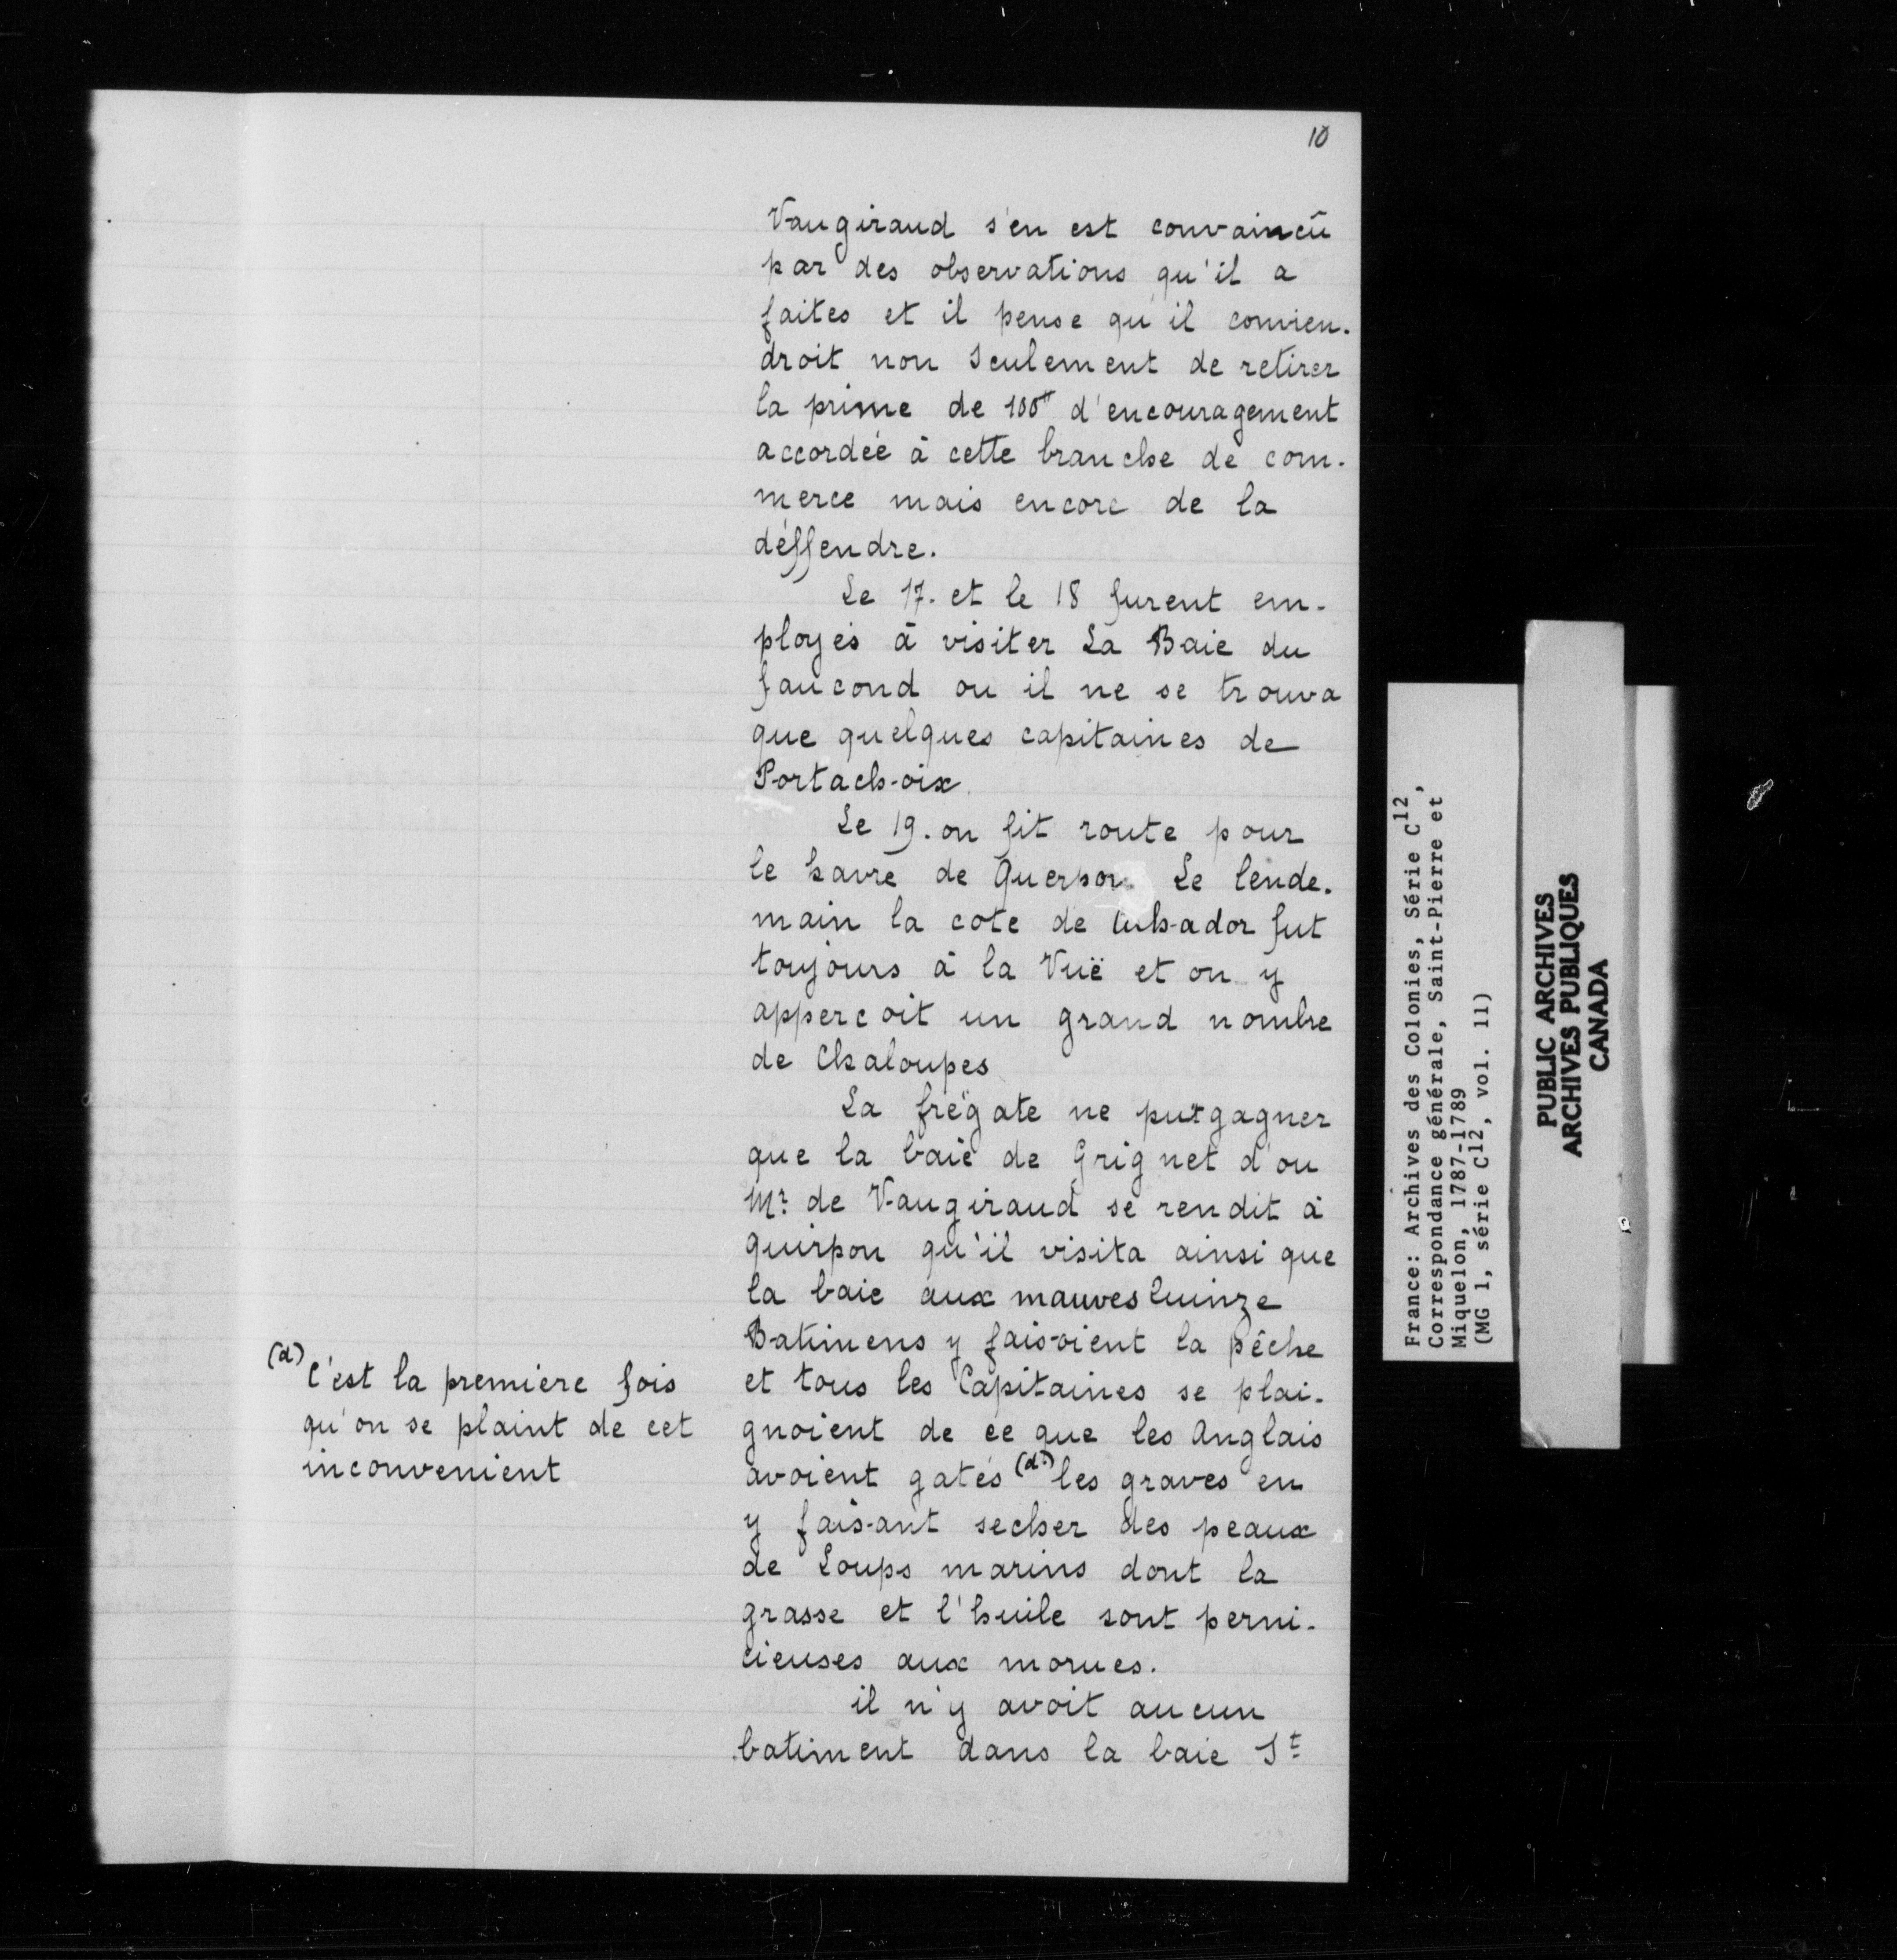 10
Vaugiraud s'en est convaincû
par des observations qu'il a
faites et il pense qu'il convien-
droit non Seulement de retirer
la prime de 100# d'encouragement
accordée à cette branche de com-
merce mais encore de la
déffendre.
Le 17. et le 18 furent em-
ployés à visiter La Baie du
faucond ou il ne se trouva
que quelques capitaines de
Portach-oix.
Le 19. on fit route pour
le havre de Querpon Le lende-
main la cote de fut
toujours à la Vuë et on y
appercoit un grand nombre
de Chaloupes
La frégate ne put gagner
que la baie de Grignet d'ou
Mr. de Vaugiraud se rendit à
quirpon qu'il visita ainsi que
la baie aux mauves
Batimens y faisoient la pêche
et tous les Capitaines se plai-
gnoient de ce que les Anglais
avoient gatés (d.) les graves en
y faisant secher des peaux
de Loups marins dont la
grasse et l'huile sont perni-
cieuses aux morues.
il n'y avoit aucun
batiment dans la baie St
(d) C'est la premiere fois
qu'on se plaint de cet
inconvenient
France: Archives des Colonies, Série C12,
Correspondance générale, Saint-Pierre et
Miquelon, 1787-1789
(MG 1, série C12, vol. 11)
PUBLIC ARCHIVES
ARCHIVES PUBLIQUES
CANADA